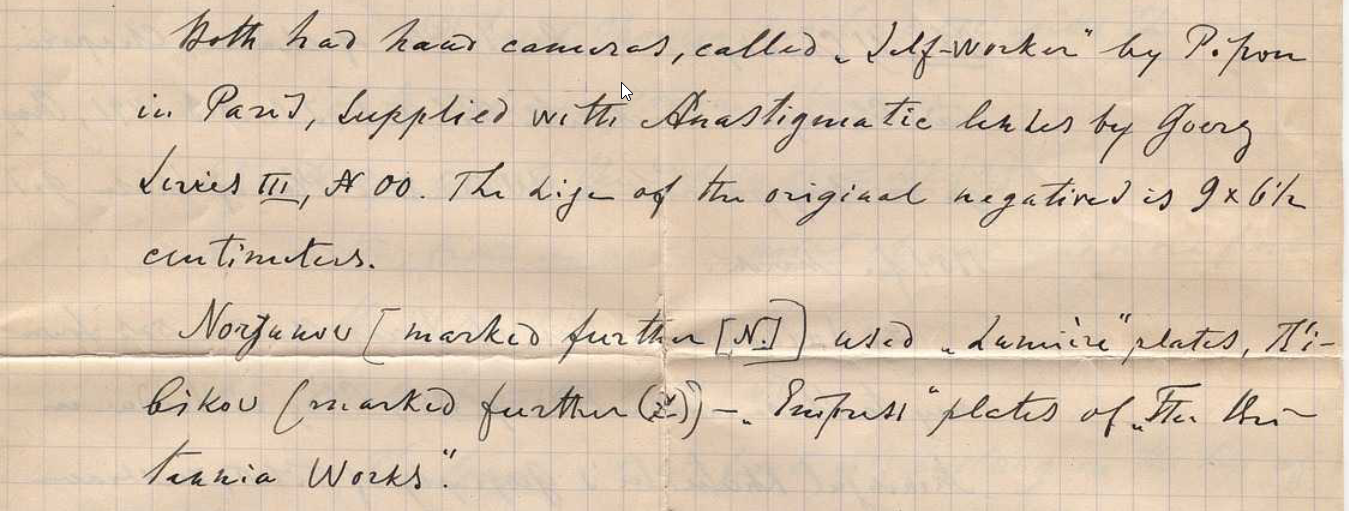 Both had hand cameras, called „Self-worker" by Pipon
in Paris, supplied with Anastigmatic lenses by Goerz
Series III, N 00. The size of the original negatives is 9 x 6½
centimeters.
Norzunov [marked further [N.]) used „Lumière" plates,
bikov (marked further - „Empress" plates of „The Bri-
tannia Works".